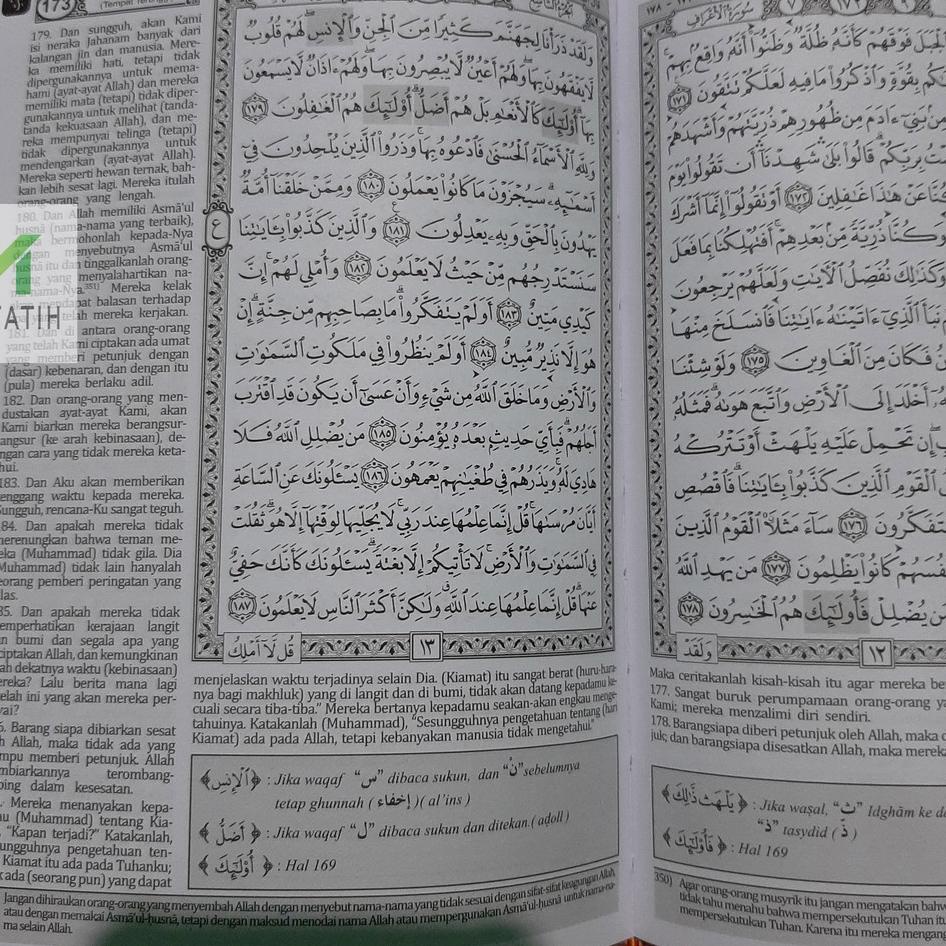 173
179. Dan sungguh, akan Kami
isi neraka Jahanam banyak dari
kalangan jin dan manusia. Mere-
ka memiliki hati, tetapi tidak
dipergunakannya untuk mema-
hami (ayat-ayat Allah) dan mereka
memiliki mata (tetapi) tidak diper-
gunakannya untuk melihat (tanda-
tanda kekuasaan Allah), dan me-
reka mempunyai telinga (tetapi)
tidak dipergunakannya untuk
mendengarkan (ayat-ayat Allah).
Mereka seperti hewan ternak, bah-
kan lebih sesat lagi. Mereka itulah
orang-orang yang lengah.
180. Dan Allah memiliki Asmā'ul
husnā (nama-nama yang terbaik),
maka bermohonlah kepada-Nya
dengan menyebutnya Asmā'ul
husnā itu dan tinggalkanlah orang-
orang yang menyalahartikan na-
ma-nama-Nya.351) Mereka kelak
mendapat balasan terhadap
apa yang telah mereka kerjakan.
ATIH
181. Dan di antara orang-orang
yang telah Kami ciptakan ada umat
yang memberi petunjuk dengan
(dasar) kebenaran, dan dengan itu
(pula) mereka berlaku adil.
182. Dan orang-orang yang men-
dustakan ayat-ayat Kami, akan
Kami biarkan mereka berangsur-
angsur (ke arah kebinasaan), de-
ngan cara yang tidak mereka keta-
hui.
183. Dan Aku akan memberikan
tenggang waktu kepada mereka.
Sungguh, rencana-Ku sangat teguh.
84. Dan apakah mereka tidak
merenungkan bahwa teman me-
eka (Muhammad) tidak gila. Dia
Muhammad) tidak lain hanyalah
eorang pemberi peringatan yang
las.
85. Dan apakah mereka tidak
emperhatikan kerajaan langit
n bumi dan segala apa yang
ciptakan Allah, dan kemungkinan
ah dekatnya waktu (kebinasaan)
ereka? Lalu berita mana lagi
elah ini yang akan mereka per-
yai?
6. Barang siapa dibiarkan sesat
h Allah, maka tidak ada yang
mpu memberi petunjuk. Allah
mbiarkannya terombang-
ping dalam kesesatan.
. Mereka menanyakan kepa-
u (Muhammad) tentang Kia-
, "Kapan terjadi?" Katakanlah,
ungguhnya pengetahuan ten-
Kiamat itu ada pada Tuhanku;
k ada (seorang pun) yang dapat
وَلَقَدْ ذَرَأْنَا لِجَهَنَّمَ كَثِيرًا مِّنَ الْجِنِّ وَالْإِنسِ لَهُمْ قُلُوبٌ
لَّا يَفْقَهُونَ بِهَا وَلَهُمْ أَعْيُنٌ لَّا يُبْصِرُونَ بِهَا وَلَهُمْ ءَاذَانٌ لَّا يَسْمَعُونَ
بِهَا أُولَٰئِكَ كَالْأَنْعَامِ بَلْ هُمْ أَضَلُّ أُولَٰئِكَ هُمُ الْغَافِلُونَ ١٧٩
وَلِلَّهِ الْأَسْمَاءُ الْحُسْنَىٰ فَادْعُوهُ بِهَا وَذَرُوا الَّذِينَ يُلْحِدُونَ فِي
أَسْمَائِهِ سَيُجْزَوْنَ مَا كَانُوا يَعْمَلُونَ ١٨٠ وَمِمَّنْ خَلَقْنَا أُمَّةٌ
يَهْدُونَ بِالْحَقِّ وَبِهِ يَعْدِلُونَ ١٨١ وَالَّذِينَ كَذَّبُوا بِـَٔايَاتِنَا
سَنَسْتَدْرِجُهُم مِّنْ حَيْثُ لَا يَعْلَمُونَ ١٨٢ وَأُمْلِي لَهُمْ إِنَّ
كَيْدِي مَتِينٌ ١٨٣ أَوَلَمْ يَتَفَكَّرُوا مَا بِصَاحِبِهِم مِّن جِنَّةٍ إِنْ
هُوَ إِلَّا نَذِيرٌ مُّبِينٌ ١٨٤ أَوَلَمْ يَنظُرُوا فِي مَلَكُوتِ السَّمَٰوَٰتِ
وَالْأَرْضِ وَمَا خَلَقَ اللَّهُ مِن شَيْءٍ وَأَنْ عَسَىٰ أَن يَكُونَ قَدِ اقْتَرَبَ
أَجَلُهُمْ فَبِأَيِّ حَدِيثٍ بَعْدَهُ يُؤْمِنُونَ ١٨٥ مَن يُضْلِلِ اللَّهُ فَلَا
هَادِيَ لَهُ وَيَذَرُهُمْ فِي طُغْيَانِهِمْ يَعْمَهُونَ ١٨٦ يَسْـَٔلُونَكَ عَنِ السَّاعَةِ
أَيَّانَ مُرْسَىٰهَا قُلْ إِنَّمَا عِلْمُهَا عِندَ رَبِّي لَا يُجَلِّيهَا لِوَقْتِهَا إِلَّا هُوَ ثَقُلَتْ
فِي السَّمَٰوَٰتِ وَالْأَرْضِ لَا تَأْتِيكُمْ إِلَّا بَغْتَةً يَسْـَٔلُونَكَ كَأَنَّكَ حَفِيٌّ
عَنْهَا قُلْ إِنَّمَا عِلْمُهَا عِندَ اللَّهِ وَلَٰكِنَّ أَكْثَرَ النَّاسِ لَا يَعْلَمُونَ ١٨٧
ع
قُل لَّا أَمْلِكُ
١٣
menjelaskan waktu terjadinya selain Dia. (Kiamat) itu sangat berat (huru-hara-
nya bagi makhluk) yang di langit dan di bumi, tidak akan datang kepadamu ke-
cuali secara tiba-tiba." Mereka bertanya kepadamu seakan-akan engkau menge-
tahuinya. Katakanlah (Muhammad), "Sesungguhnya pengetahuan tentang (hari
Kiamat) ada pada Allah, tetapi kebanyakan manusia tidak mengetahui."
﴿الْإِنسِ﴾ : Jika waqaf "س" dibaca sukun, dan "نْ" sebelumnya
tetap ghunnah ( إخفاء )( al'ins )
﴿أَضَلُّ﴾ : Jika waqaf "ل" dibaca sukun dan ditekan.( aḍoll )
﴿أُولَٰئِكَ﴾ : Hal 169
Jangan dihiraukan orang-orang yang menyembah Allah dengan menyebut nama-nama yang tidak sesuai dengan sifat-sifat keagungan Allah,
atau dengan memakai Asmā'ul-ḥusnā, tetapi dengan maksud menodai nama Allah atau mempergunakan Asmā'ul-ḥusnā untuk nama-na-
ma selain Allah.
سُورَةُ الْأَعْرَافِ ٧
الْجَبَلَ فَوْقَهُمْ كَأَنَّهُ ظُلَّةٌ وَظَنُّوا أَنَّهُ وَاقِعٌ بِهِمْ
كُم بِقُوَّةٍ وَاذْكُرُوا مَا فِيهِ لَعَلَّكُمْ تَتَّقُونَ ١٧١
مِن بَنِي ءَادَمَ مِن ظُهُورِهِمْ ذُرِّيَّتَهُمْ وَأَشْهَدَهُمْ
بِرَبِّكُمْ قَالُوا بَلَىٰ شَهِدْنَا أَن تَقُولُوا يَوْمَ
عَنْ هَٰذَا غَافِلِينَ ١٧٢ أَوْ تَقُولُوا إِنَّمَا أَشْرَكَ
وَكُنَّا ذُرِّيَّةً مِّن بَعْدِهِمْ أَفَتُهْلِكُنَا بِمَا فَعَلَ
وَكَذَٰلِكَ نُفَصِّلُ الْآيَاتِ وَلَعَلَّهُمْ يَرْجِعُونَ
نَبَأَ الَّذِي ءَاتَيْنَاهُ ءَايَاتِنَا فَانسَلَخَ مِنْهَا
فَكَانَ مِنَ الْغَاوِينَ ١٧٥ وَلَوْ شِئْنَا
أَخْلَدَ إِلَى الْأَرْضِ وَاتَّبَعَ هَوَاهُ فَمَثَلُهُ
إِن تَحْمِلْ عَلَيْهِ يَلْهَثْ أَوْ تَتْرُكْهُ
الْقَوْمِ الَّذِينَ كَذَّبُوا بِـَٔايَاتِنَا فَاقْصُصِ
يَتَفَكَّرُونَ ١٧٦ سَاءَ مَثَلًا الْقَوْمُ الَّذِينَ
أَنفُسَهُمْ كَانُوا يَظْلِمُونَ ١٧٧ مَن يَهْدِ اللَّهُ
مَن يُضْلِلْ فَأُولَٰئِكَ هُمُ الْخَاسِرُونَ ١٧٨
وَلَقَدْ
١٢
Maka ceritakanlah kisah-kisah itu agar mereka be
177. Sangat buruk perumpamaan orang-orang ya
Kami; mereka menzalimi diri sendiri.
178. Barangsiapa diberi petunjuk oleh Allah, maka d
juk; dan barangsiapa disesatkan Allah, maka mereka
﴿يَلْهَث ذَّٰلِكَ﴾ : Jika waṣal, "ث" Idghām ke da
"ذ" tasydid ( ذّ )
﴿فَأُولَٰئِكَ﴾ : Hal 169
350) Agar orang-orang musyrik itu jangan mengatakan bahw
tidak tahu menahu bahwa mempersekutukan Tuhan itu
mempersekutukan Tuhan. Karena itu mereka mengang